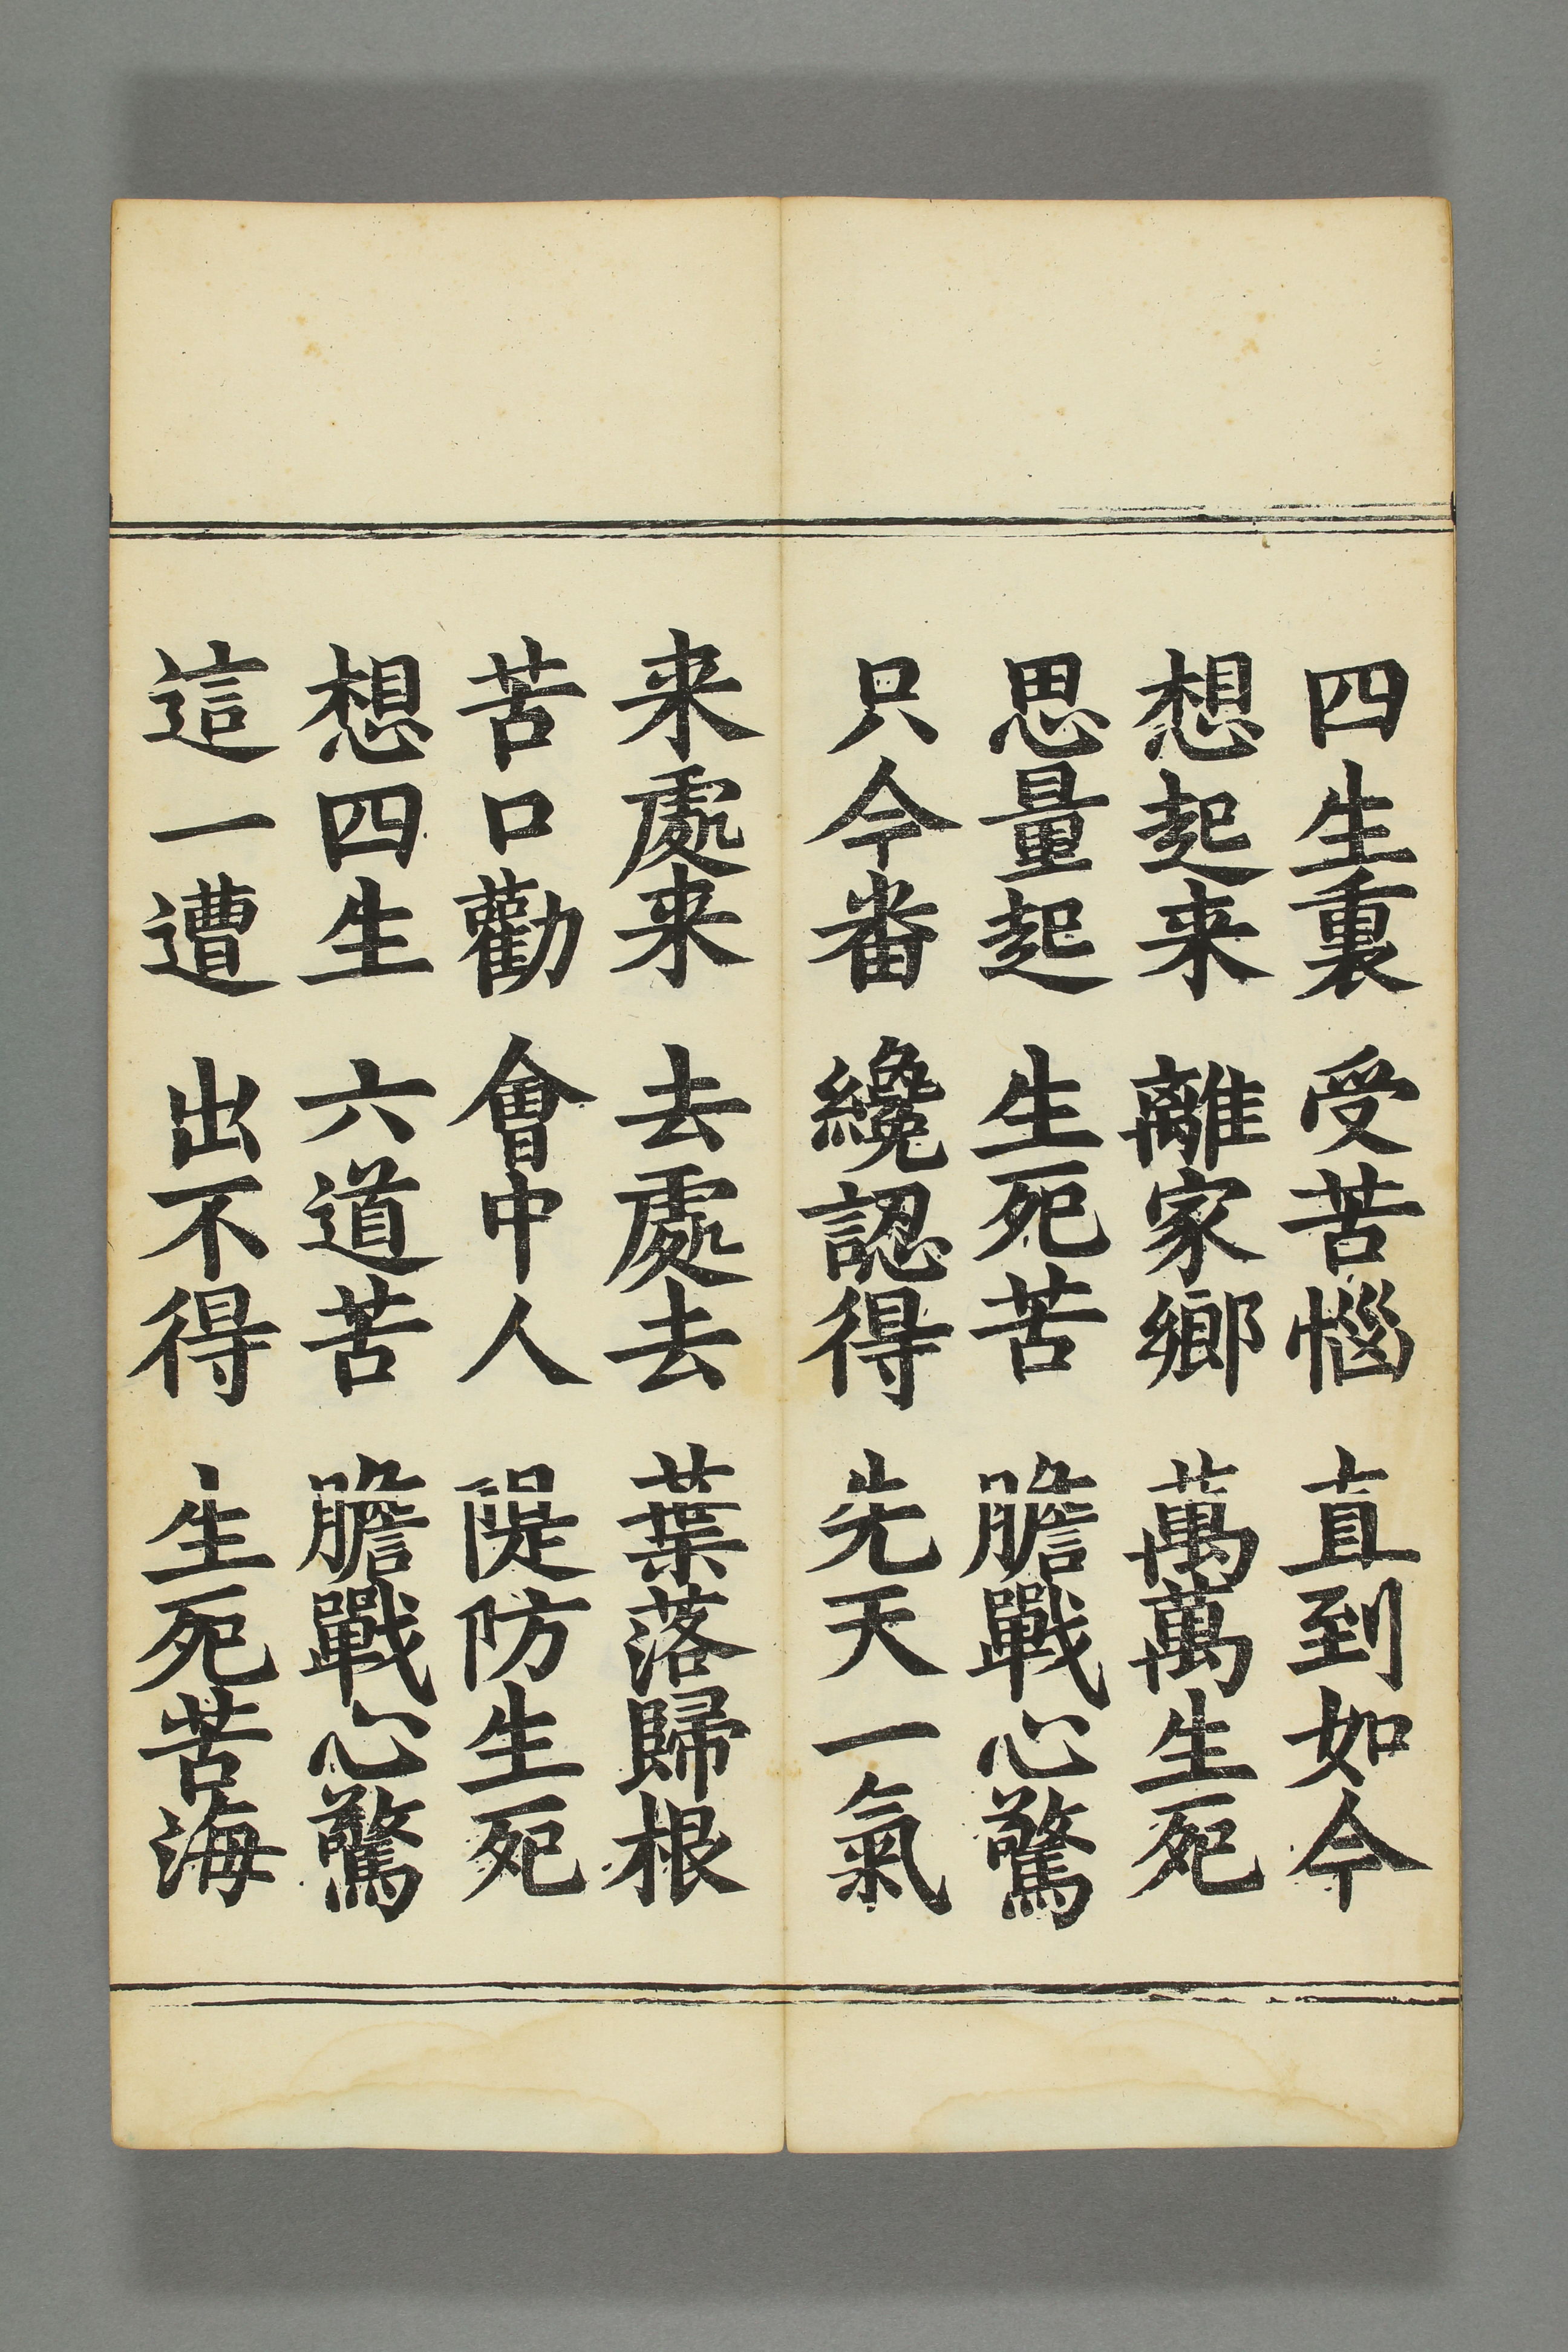 四生裏 受苦惱 直到如今
想起来 離家鄉 萬萬生死
思量起 生死苦 膽戰心驚
只今番 纔認得 先天一氣
来處来 去處去 葉落歸根
苦口勸 會中人 隄防生死
想四生 六道苦 膽戰心驚
這一遭 出不得 生死苦海